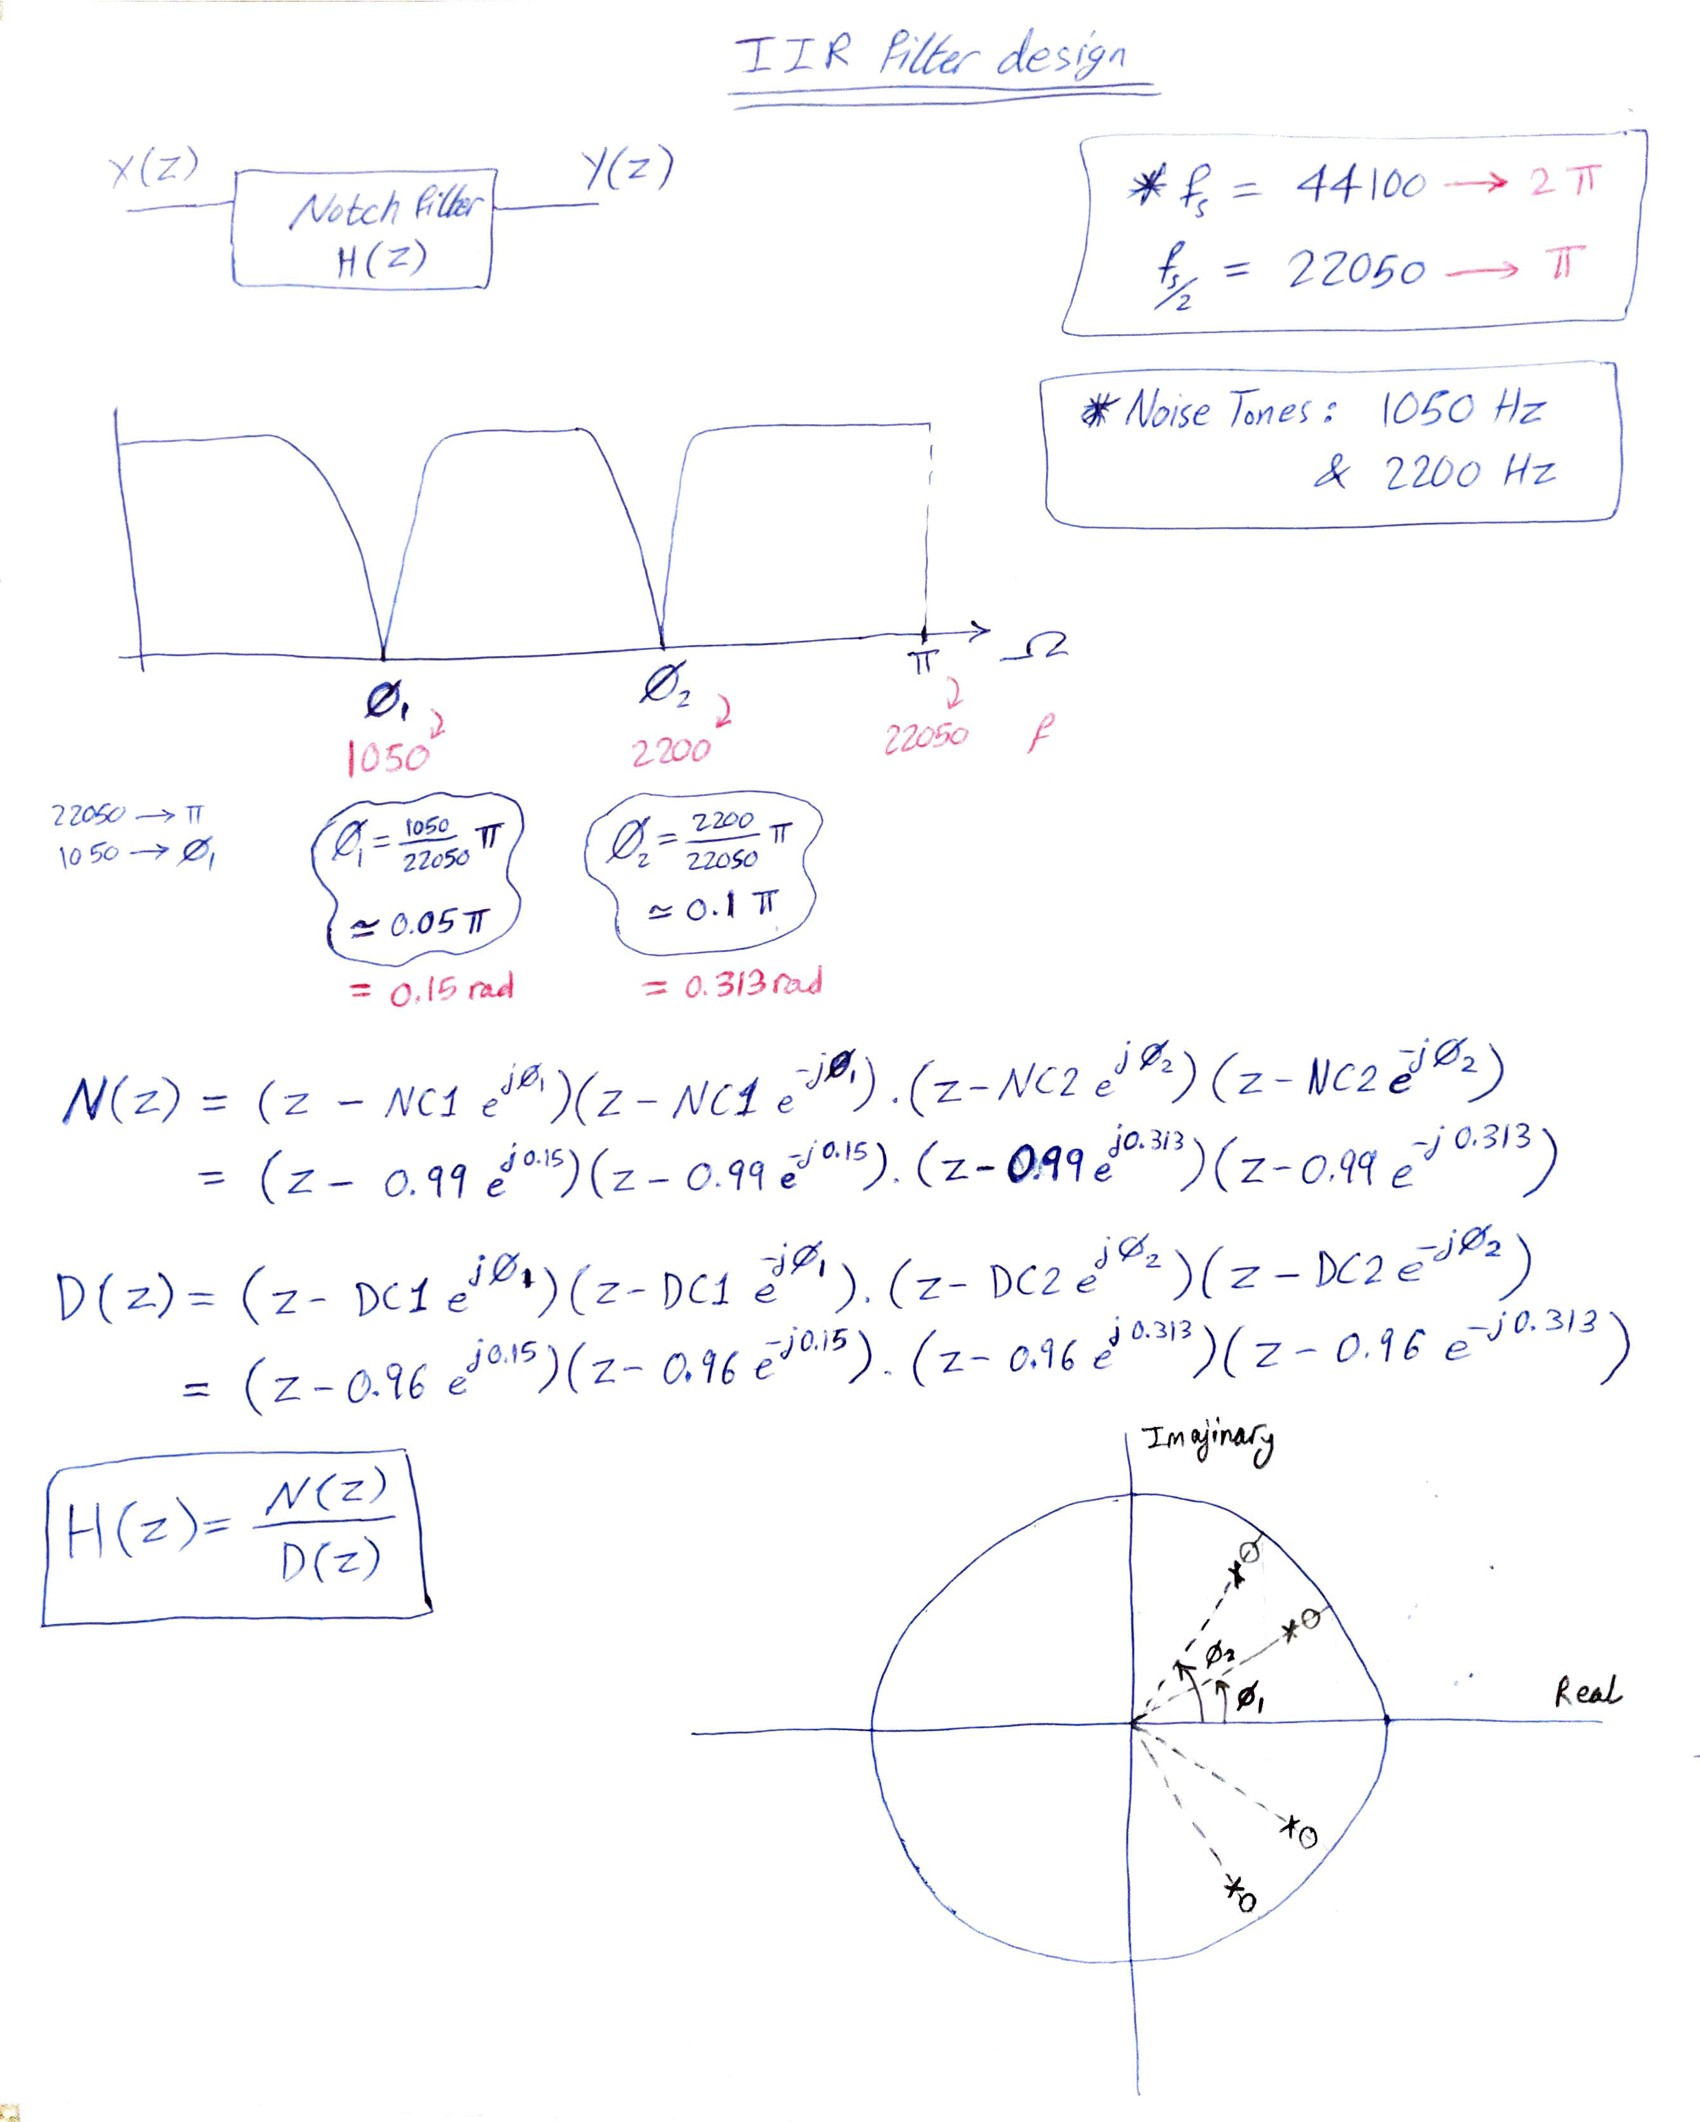 IIR filter design
X(z)
Notch filter
H(z)
Y(z)
* fs = 44100 → 2π
fs/2 = 22050 → π
* Noise Tones: 1050 Hz
& 2200 Hz
Ø₁ Ø₂ π Ω
1050 2200 22050 f
22050 → π
1050 → Ø₁
Ø₁ = 1050/22050 π
≃ 0.05 π
= 0.15 rad
Ø₂ = 2200/22050 π
≃ 0.1 π
= 0.313 rad
N(z) = (z - NC1 e^{jØ₁})(z - NC1 e^{-jØ₁}).(z - NC2 e^{jØ₂})(z - NC2 e^{-jØ₂})
= (z - 0.99 e^{j0.15})(z - 0.99 e^{-j0.15}).(z - 0.99 e^{j0.313})(z - 0.99 e^{-j0.313})
D(z) = (z - DC1 e^{jØ₁})(z - DC1 e^{-jØ₁}).(z - DC2 e^{jØ₂})(z - DC2 e^{-jØ₂})
= (z - 0.96 e^{j0.15})(z - 0.96 e^{-j0.15}).(z - 0.96 e^{j0.313})(z - 0.96 e^{-j0.313})
H(z) = N(z)/D(z)
Imajinary
Ø₂
Ø₁
Real